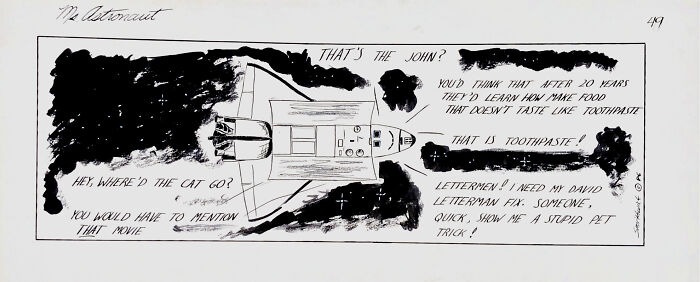 Ms Astronaut
49
THAT'S THE JOHN?
YOU'D THINK THAT AFTER 20 YEARS
THEY'D LEARN HOW MAKE FOOD
THAT DOESN'T TASTE LIKE TOOTHPASTE
THAT IS TOOTHPASTE!
HEY, WHERE'D THE CAT GO?
YOU WOULD HAVE TO MENTION
THAT MOVIE
LETTERMEN! I NEED MY DAVID
LETTERMAN FIX. SOMEONE,
QUICK, SHOW ME A STUPID PET
TRICK!